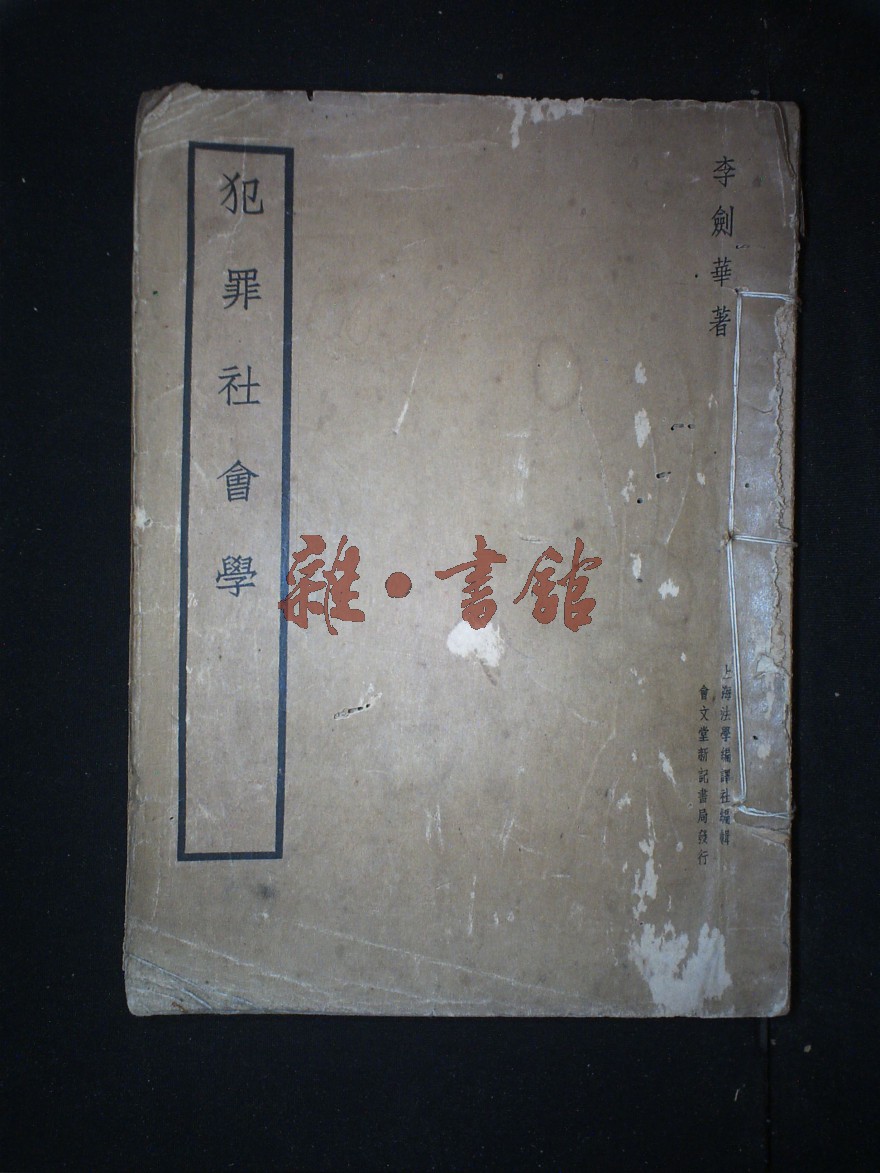 李劍華著
上海法學編譯社編輯
會文堂新記書局發行
犯罪社會學
雜·書館